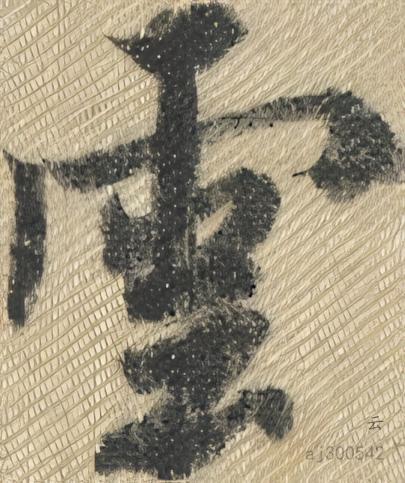 雲
云
aj300542